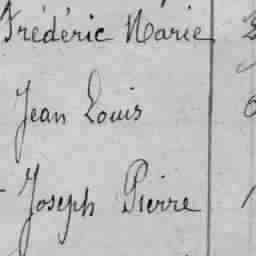 Frédéric Marie
Jean Louis
Joseph Pierre